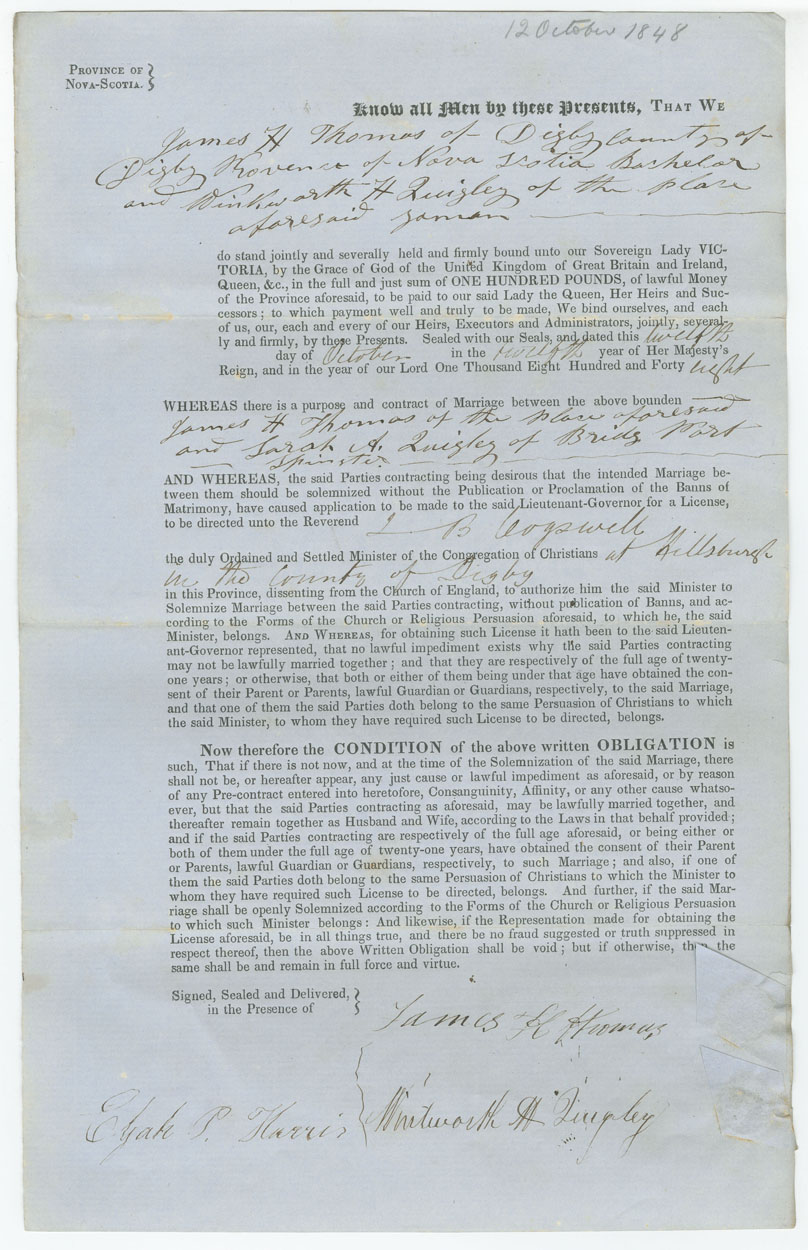 12 October 1848
PROVINCE OF
NOVA-SCOTIA.
Know all Men by these Presents, THAT WE
James H Thomas of Digby County of
Digby Provence of Nova Scotia Bachelor
and Winkworth H Quigley of the place
aforesaid yoman
do stand jointly and severally held and firmly bound unto our Sovereign Lady VIC-
TORIA, by the Grace of God of the United Kingdom of Great Britain and Ireland,
Queen, &c., in the full and just sum of ONE HUNDRED POUNDS, of lawful Money
of the Province aforesaid, to be paid to our said Lady the Queen, Her Heirs and Suc-
cessors; to which payment well and truly to be made, We bind ourselves, and each
of us, our, each and every of our Heirs, Executors and Administrators, jointly, several-
ly and firmly, by these Presents. Sealed with our Seals, and dated this twelfth
day of October in the twelfth year of Her Majesty's
Reign, and in the year of our Lord One Thousand Eight Hundred and Forty eight
WHEREAS there is a purpose and contract of Marriage between the above bounden
James H Thomas of the place aforesaid
and Sarah A. Quigley of Bridg Port
Spinster
AND WHEREAS, the said Parties contracting being desirous that the intended Marriage be-
tween them should be solemnized without the Publication or Proclamation of the Banns of
Matrimony, have caused application to be made to the said Lieutenant-Governor for a License,
to be directed unto the Reverend B Cogswell
the duly Ordained and Settled Minister of the Congregation of Christians at Hillsburgh
in the County of Digby
in this Province, dissenting from the Church of England, to authorize him the said Minister to
Solemnize Marriage between the said Parties contracting, without publication of Banns, and ac-
cording to the Forms of the Church or Religious Persuasion aforesaid, to which he, the said
Minister, belongs. AND WHEREAS, for obtaining such License it hath been to the said Lieuten-
ant-Governor represented, that no lawful impediment exists why the said Parties contracting
may not be lawfully married together; and that they are respectively of the full age of twenty-
one years; or otherwise, that both or either of them being under that age have obtained the con-
sent of their Parent or Parents, lawful Guardian or Guardians, respectively, to the said Marriage,
and that one of them the said Parties doth belong to the same Persuasion of Christians to which
the said Minister, to whom they have required such License to be directed, belongs.
Now therefore the CONDITION of the above written OBLIGATION is
such, That if there is not now, and at the time of the Solemnization of the said Marriage, there
shall not be, or hereafter appear, any just cause or lawful impediment as aforesaid, or by reason
of any Pre-contract entered into heretofore, Consanguinity, Affinity, or any other cause whatso-
ever, but that the said Parties contracting as aforesaid, may be lawfully married together, and
thereafter remain together as Husband and Wife, according to the Laws in that behalf provided;
and if the said Parties contracting are respectively of the full age aforesaid, or being either or
both of them under the full age of twenty-one years, have obtained the consent of their Parent
or Parents, lawful Guardian or Guardians, respectively, to such Marriage; and also, if one of
them the said Parties doth belong to the same Persuasion of Christians to which the Minister to
whom they have required such License to be directed, belongs. And further, if the said Mar-
riage shall be openly Solemnized according to the Forms of the Church or Religious Persuasion
to which such Minister belongs: And likewise, if the Representation made for obtaining the
License aforesaid, be in all things true, and there be no fraud suggested or truth suppressed in
respect thereof, then the above Written Obligation shall be void; but if otherwise, then the
same shall be and remain in full force and virtue.
Signed, Sealed and Delivered,
in the Presence of
James H Thomas
P. Harris
Wintworth H Quigley